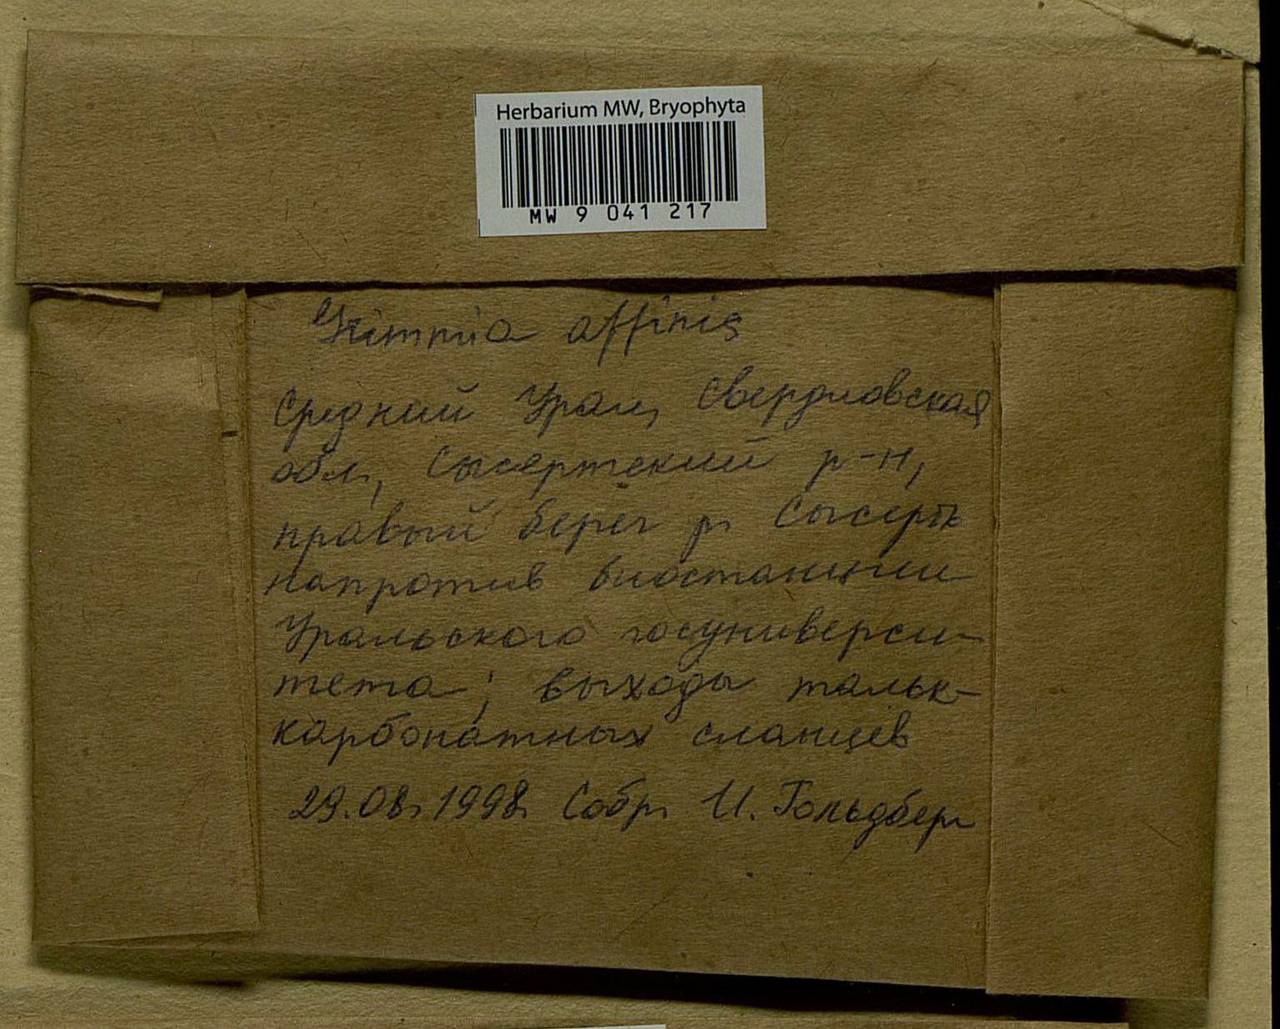 Herbarium MW, Bryophyta
MW 9 041 217
Grimmia affinis
Средний Урал, Свердловская
обл., Сысертский р-н,
правый берег р. Сысерть
напротив биостанции
Уральского госуниверси-
тета; выходы тальк-
карбонатных сланцев
29.08.1998. Собр. И. Гольдберг